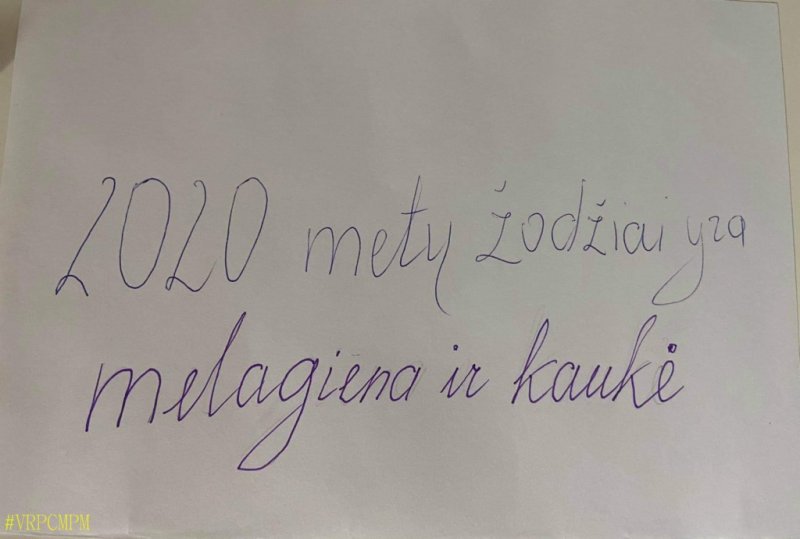 2020 metų žodžiai yra
melagiena ir kaukė
#VRPCMPM